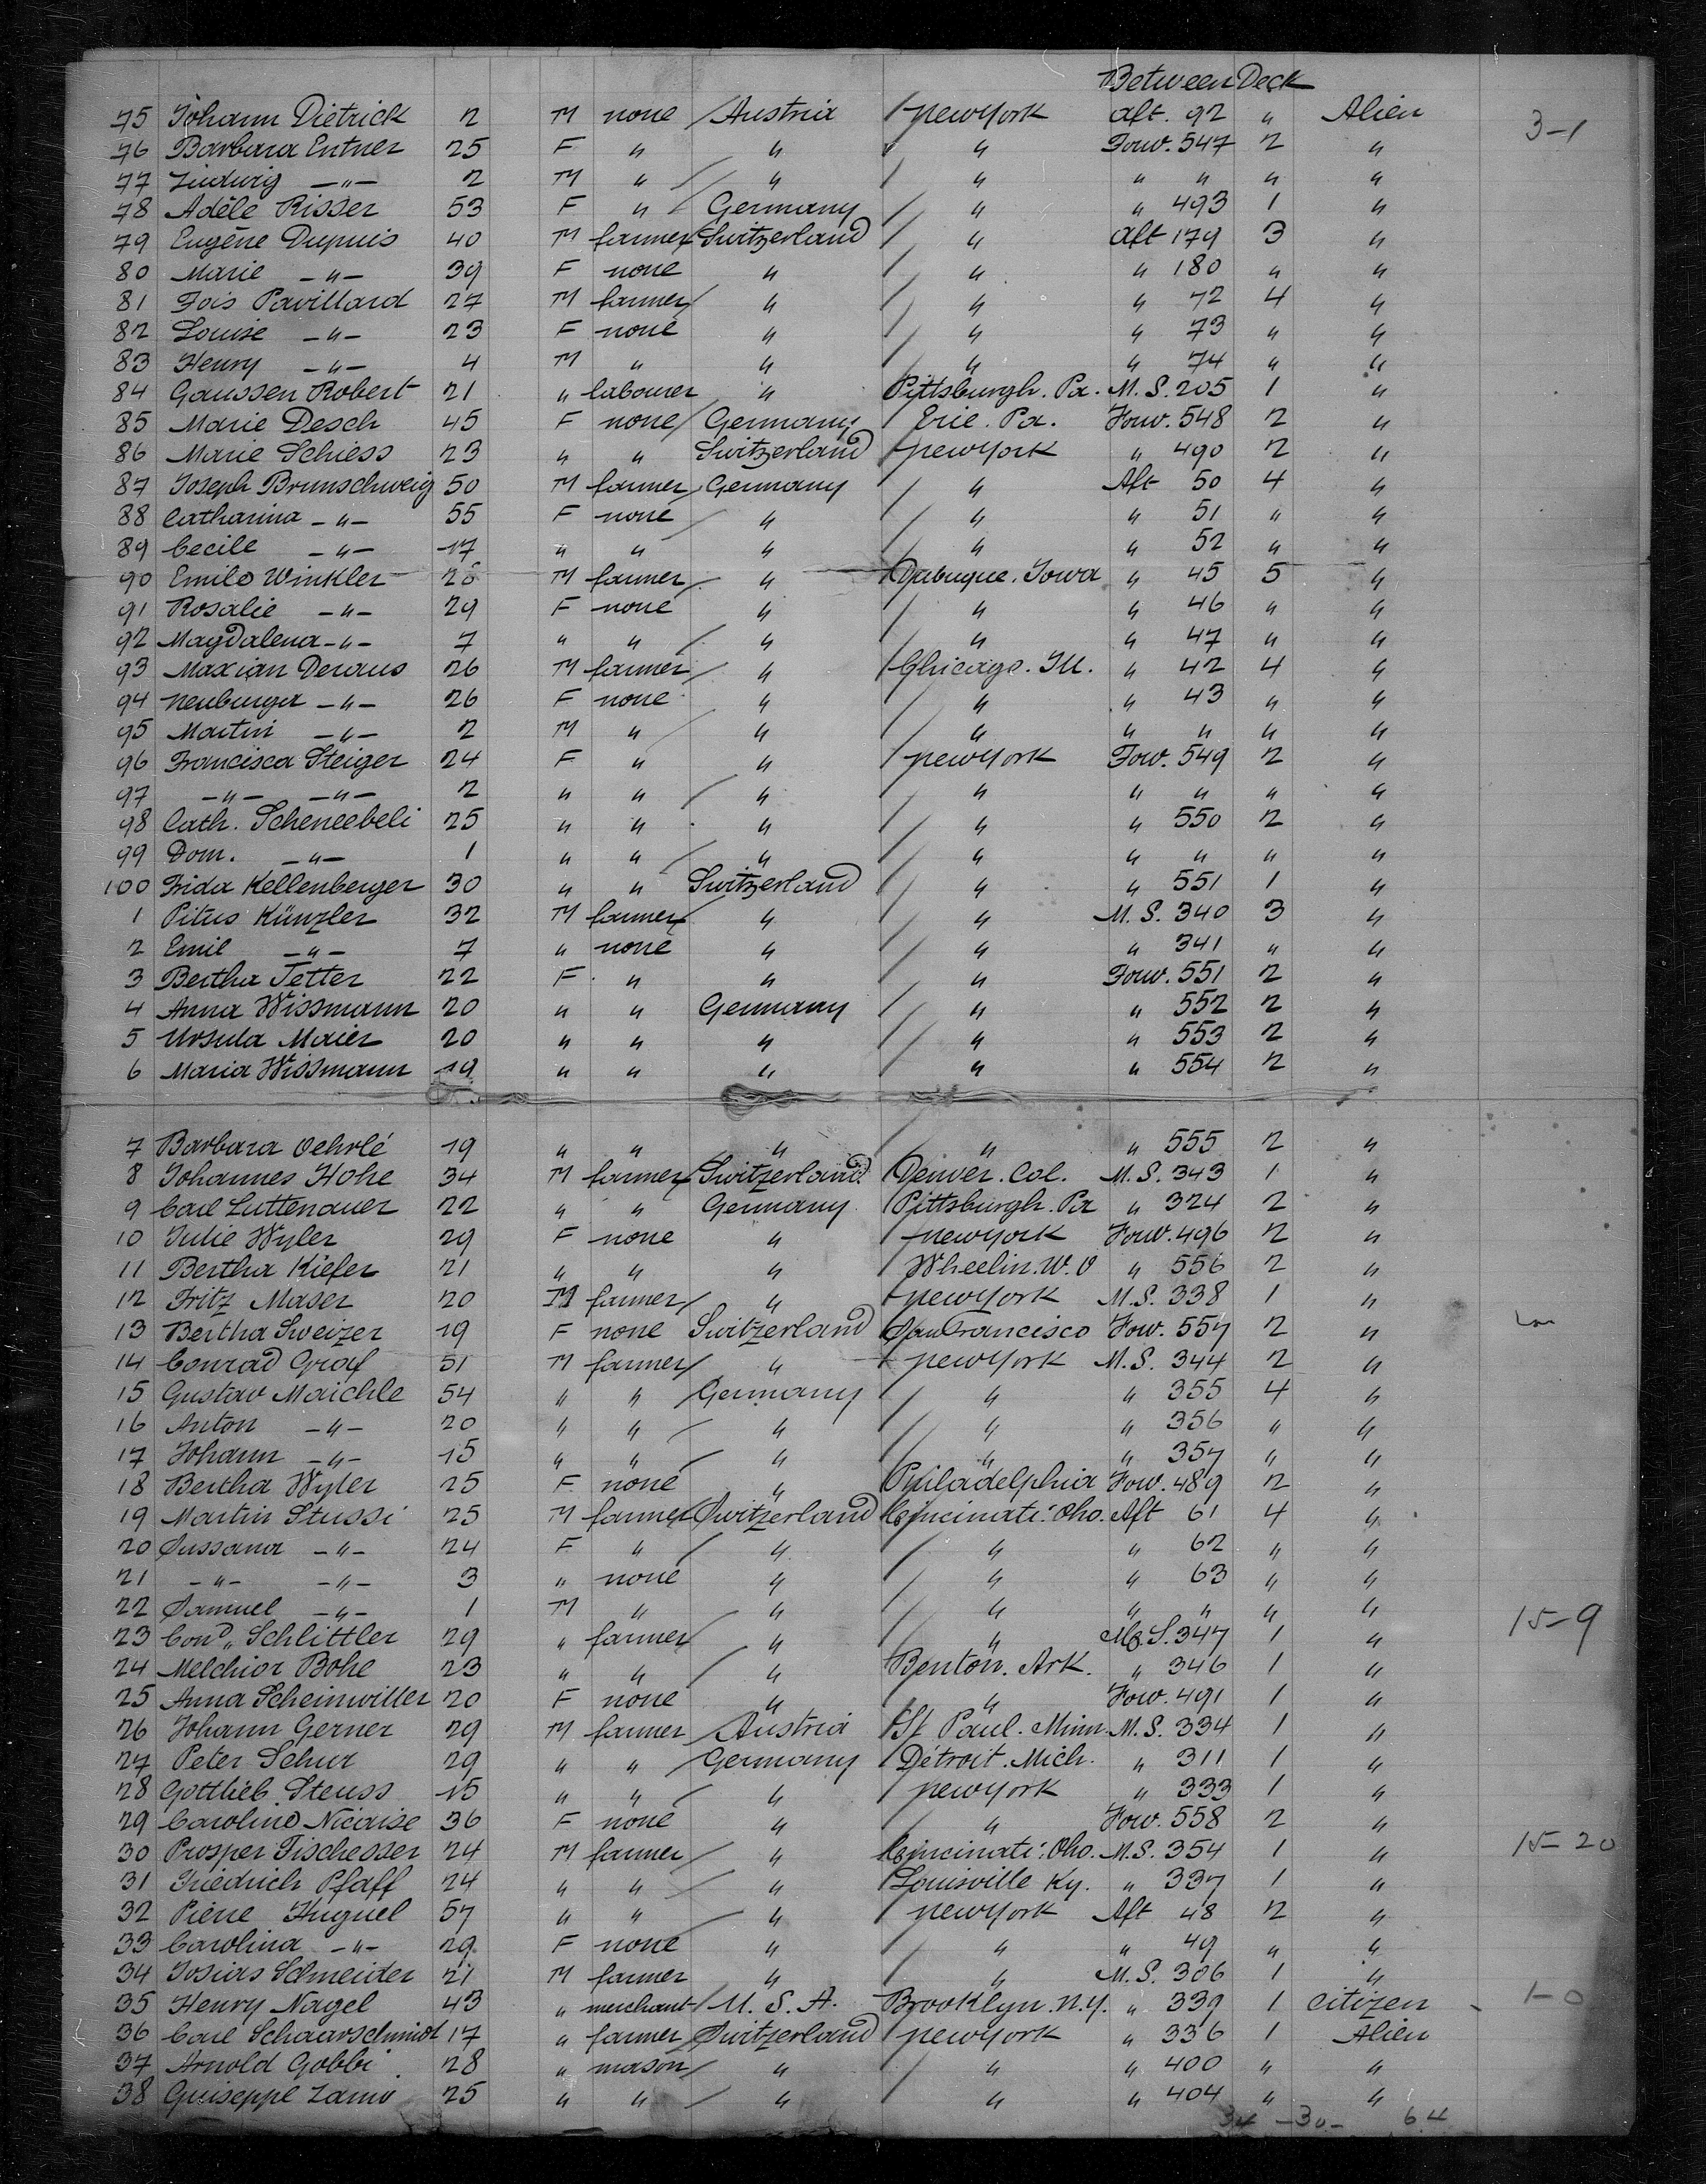 Between Deck
75 Johann Dietrick 2 M none Austria New York Aft. 92 " Alien
3-1
76 Barbara Entner 25 F " " " Forw. 547 2 "
77 Ludwig -"- 2 M " " " " " " "
78 Adèle Risser 53 F " Germany " " 493 1 "
79 Eugène Dupuis 40 M farmer Switzerland " Aft 179 3 "
80 Marie -"- 39 F none " " " 180 " "
81 Fois Pavillard 27 M farmer " " " 72 4 "
82 Louise -"- 23 F none " " " 73 " "
83 Henry -"- 4 M " " " " 74 " "
84 Gaussen Robert 21 " labourer " Pittsburgh. Pa. M. S. 205 1 "
85 Marie Desch 45 F none Germany Erie. Pa. Forw. 548 2 "
86 Marie Schiess 23 " " Switzerland New York " 490 2 "
87 Joseph Brunschweig 50 M farmer Germany " Aft 50 4 "
88 Catharina -"- 55 F none " " " 51 " "
89 Cecile -"- 17 " " " " " 52 " "
90 Emile Winkler 28 M farmer " Dubuque. Iowa " 45 5 "
91 Rosalie -"- 29 F none " " " 46 " "
92 Magdalena -"- 7 " " " " " 47 " "
93 Maxian Deraus 26 M farmer " Chicago. Ill. " 42 4 "
94 Neuburga -"- 26 F none " " " 43 " "
95 Martin -"- 2 M " " " " " " "
96 Francisca Steiger 24 F " " New York Forw. 549 2 "
97 -"- -"- 2 " " " " " " " "
98 Cath. Scheneebeli 25 " " " " " 550 2 "
99 Dom. -"- 1 " " " " " " " "
100 Frida Kellenberger 30 " " Switzerland " " 551 1 "
1 Pitus Künzler 32 M farmer " " M. S. 340 3 "
2 Emil -"- 7 " none " " " 341 " "
3 Bertha Tetter 22 F " " " Forw. 551 2 "
4 Anna Wissmann 20 " " Germany " " 552 2 "
5 Ursula Maier 20 " " " " " 553 2 "
6 Maria Wissmann 19 " " " " " 554 2 "
7 Barbara Oehrlé 19 " " " " " 555 2 "
8 Johannes Hohe 34 M farmer Switzerland Denver. Col. M. S. 343 1 "
9 Carl Luttenauer 22 " " Germany Pittsburgh. Pa " 324 2 "
10 Julie Wyler 29 F none " New York Forw. 496 2 "
11 Bertha Kiefer 21 " " " Wheelin. W. V " 556 2 "
12 Fritz Maser 20 M farmer " New York M. S. 338 1 "
13 Bertha Sweizer 19 F none Switzerland San Francisco Forw. 557 2 "
14 Conrad Graf 51 M farmer " New York M. S. 344 2 "
15 Gustav Maichle 54 " " Germany " " 355 4 "
16 Anton -"- 20 " " " " " 356 " "
17 Johann -"- 15 " " " " " 357 " "
18 Bertha Wyler 25 F none " Philadelphia Forw. 489 2 "
19 Martin Stussi 25 M farmer Switzerland Cincinati: Oho. Aft 61 4 "
20 Sussana -"- 24 F " " " " 62 " "
21 -"- -"- 3 " none " " " 63 " "
22 Samuel -"- 1 M " " " " " " "
15-9
23 Cond, Schlittler 29 " farmer " " M. S. 347 1 "
24 Melchior Bohe 23 " " " Benton. Ark. " 346 1 "
25 Anna Scheinwiller 20 F none " " Forw. 491 1 "
26 Johann Gerner 29 M farmer Austria St Paul. Minn. M. S. 334 1 "
27 Peter Schur 29 " " Germany Détroit. Mich. " 311 1 "
28 Gottlieb Steuss 15 " " " New York " 333 1 "
29 Caroline Nicaise 36 F none " " Forw. 558 2 "
15-20
30 Prosper Fischesser 24 M farmer " Cincinati: Oho. M. S. 354 1 "
31 Friedrich Pfaff 24 " " " Louisville Ky. " 337 1 "
32 Pierre Huguel 57 " " " New York Aft 48 2 "
33 Carolina -"- 29 F none " " " 49 " "
34 Josias Schneider 21 M farmer " " M. S. 306 1 "
35 Henry Nagel 43 " merchant U. S. A. Brooklyn. N.Y. " 339 1 Citizen
1-0
36 Carl Schaarschmidt 17 " farmer Switzerland New York " 336 1 Alien
37 Arnold Gobbi 28 " mason " " " 400 " "
38 Guiseppe Zamo 25 " " " " " 404 " "
34 -30- 64